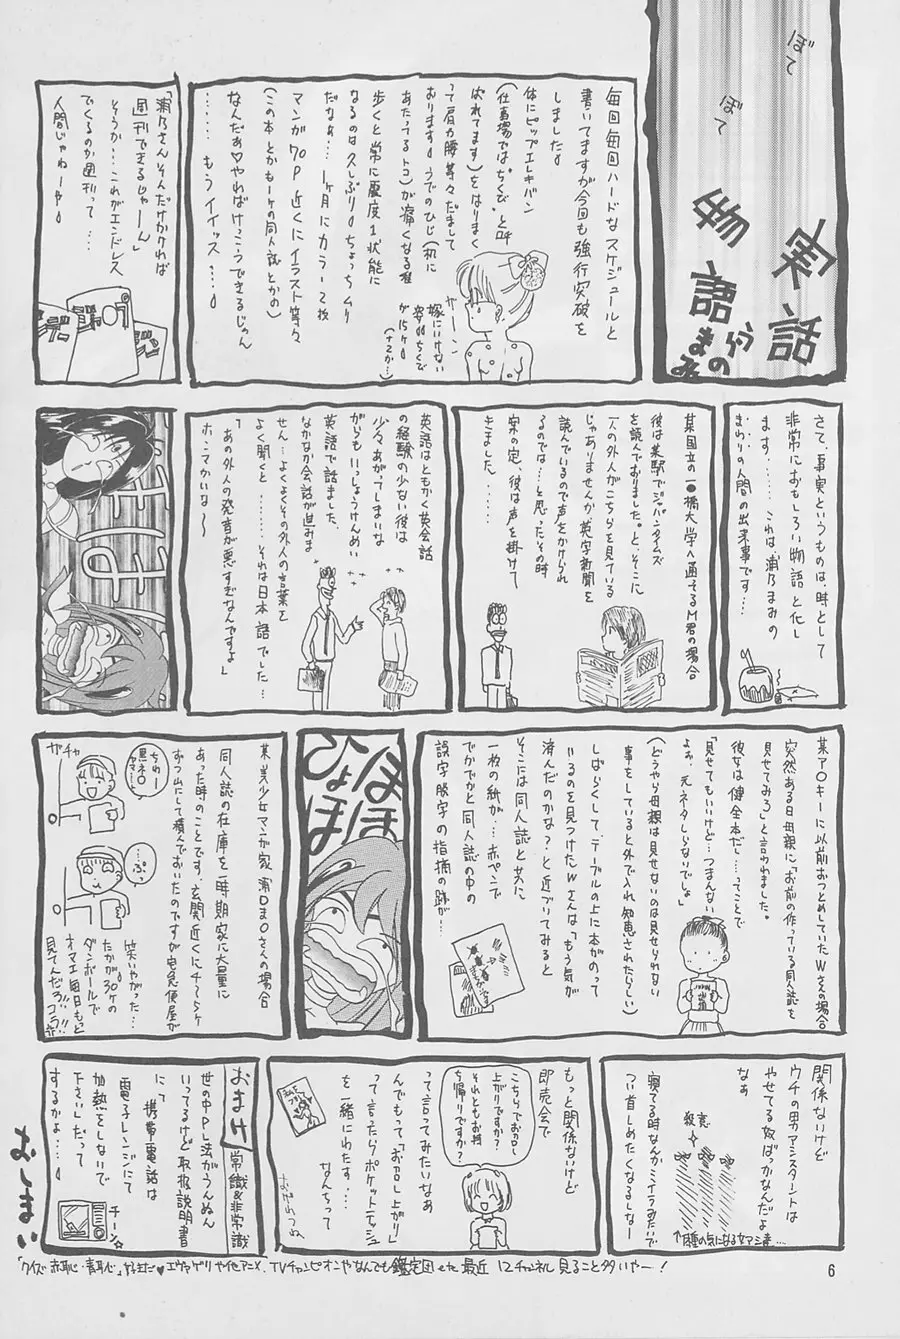 ぼて
ぼて
実話
物語
うらの
まみ
毎回毎回ハードなスケジュールと
書いてますが今回も強行突破を
しました。
体にピップエレキバン
(仕事場では"ちくび"と呼
ばれてます)をはりまく
って肩力腰等々だまして
おります。うでのひじ(机に
あたってるトコ)が痛くなる程
歩くと常に震度1状態に
なるのは久しぶり。ちょっちムリ
だなぁ…1ヶ月にカラー2枚
マンガ70P近くにイラスト等々
(この本とかもー1ヶの同人誌とかの)
なんだぁ♡やればけっこうできるじゃん
……もうイイッス…。
ザーン
嫁にいけない
姿。ちくで
が15ヶ。
(+2か…)
「浦乃さんそんだけかければ
週刊できるじゃーん」
そうか…これがエンドレス
でくるのか週刊って…
人間じゃねーや。
さて事実というものは、時として
非常におもしろい物語と化し
ます……これは浦乃まみの
まわりの人間の出来事です…
某国立の一●橋大学へ通ってるM君の場合
彼は某駅でジャパンタイムズ
を読んでおりました。と、そこに
一人の外人がこちらを見ている
じゃありませんか英字新聞を
読んでいるので声をかけられ
るのでは…と思ったその時
案の定、彼は声を掛けて
きました……
英語はともかく英会話
の経験の少ない彼は
少々あがってしまいな
がらもいっしょうけんめい
英語で話ました、
なかなか会話が進みま
せん…よくよくその外人の言葉を
よく聞くと……それは日本語でした…
「あの外人の発音が悪すぎなんですよ」
ホンマかいな〜
某ア○キーに以前おつとめしていたWさんの場合
突然ある日母親に「お前の作っている同人誌を
見せてみろ」と言われました。
彼女は健全本だし…ってことで
「見せてもいいけど…つまんない
よぉ、元ネタしらないでしょ」
(どうやら母親は見せないのは見せられない
事をしていると外で入れ知恵されたらしい)
しばらくして、テーブルの上に本がのって
いるのを見つけたWさんは「もう気が
済んだのかな?」と近づいてみると
そこには同人誌と共に
一枚の紙が…赤ペンで
でかでかと同人誌の中の
誤字脱字の指摘の跡が…
ほほ
ひょほ
某・美少女マンガ家 浦○ま○さんの場合
同人誌の在庫を一時期家に大量に
あった時のことです。玄関近くにチ〜らケ
ずつ山にして積んでおいたのですが宅急便屋が
ガチャ
ちわー
黒ネ○
ヤマトー
…ぷ
笑いやがった…
たかが30ヶの
ダンボールで
オマエ毎日もっと
見てんだろ!!コラ!!
関係ないけど
ウチの男アシスタントは
やせてる奴ばっかなんだよ
なぁ
寝てる時なんかミイラみたいで
つい首しめたくなるしなー
殺意
もっと関係ないけど
即売会で
こちらでおめし
上がりですか?
それともお持
ち帰りですか?
って言ってみたいなぁ
んでもって「おめし上がり」
って言たらポケットティッシュ
を一緒にわたす…
なんちって
おまけ
常識&非常識
世の中PL法がうんぬん
いってるけど取扱説明書
に携帯電話は
電子レンジにて
加熱をしないで
下さいしだって
するかよ…。
チーン☆
おしまい
「クイズ赤恥・青恥」、まだまだ♥エヴァゲリや他アニメ、TVチャンピオンやなんでも鑑定団etc最近12チャンネル見ること多いやー!
6